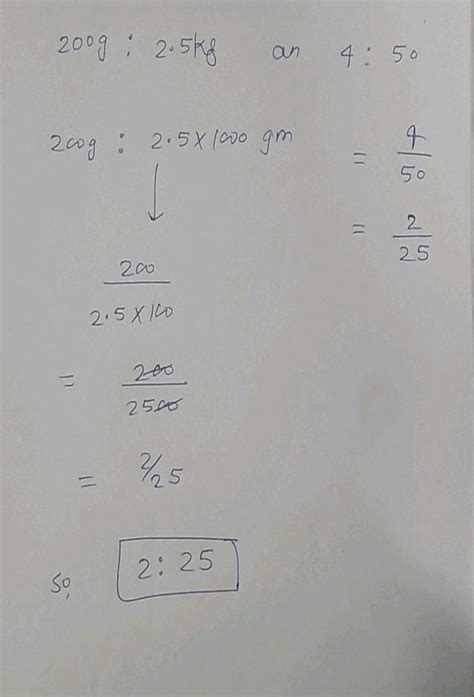 200g : 2.5kg an 4 : 50
200g : 2.5 x 1000 gm = 4/50
= 2/25
200/2.5 x 100
= 200/2500
= 2/25
so, 2 : 25